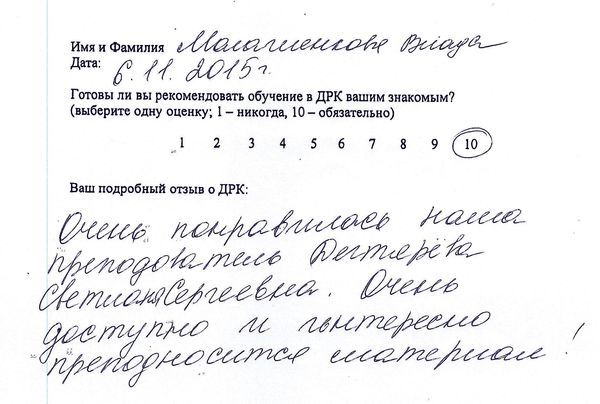 Имя и Фамилия Малашенкова Влада
Дата: 6.11.2015г.
Готовы ли вы рекомендовать обучение в ДРК вашим знакомым?
(выберите одну оценку; 1 – никогда, 10 – обязательно)
1 2 3 4 5 6 7 8 9 10
Ваш подробный отзыв о ДРК:
Очень понравилась наша
преподователь Дегтярёва
Светлана Сергеевна. Очень
доступно и интересно
преподносится материал!